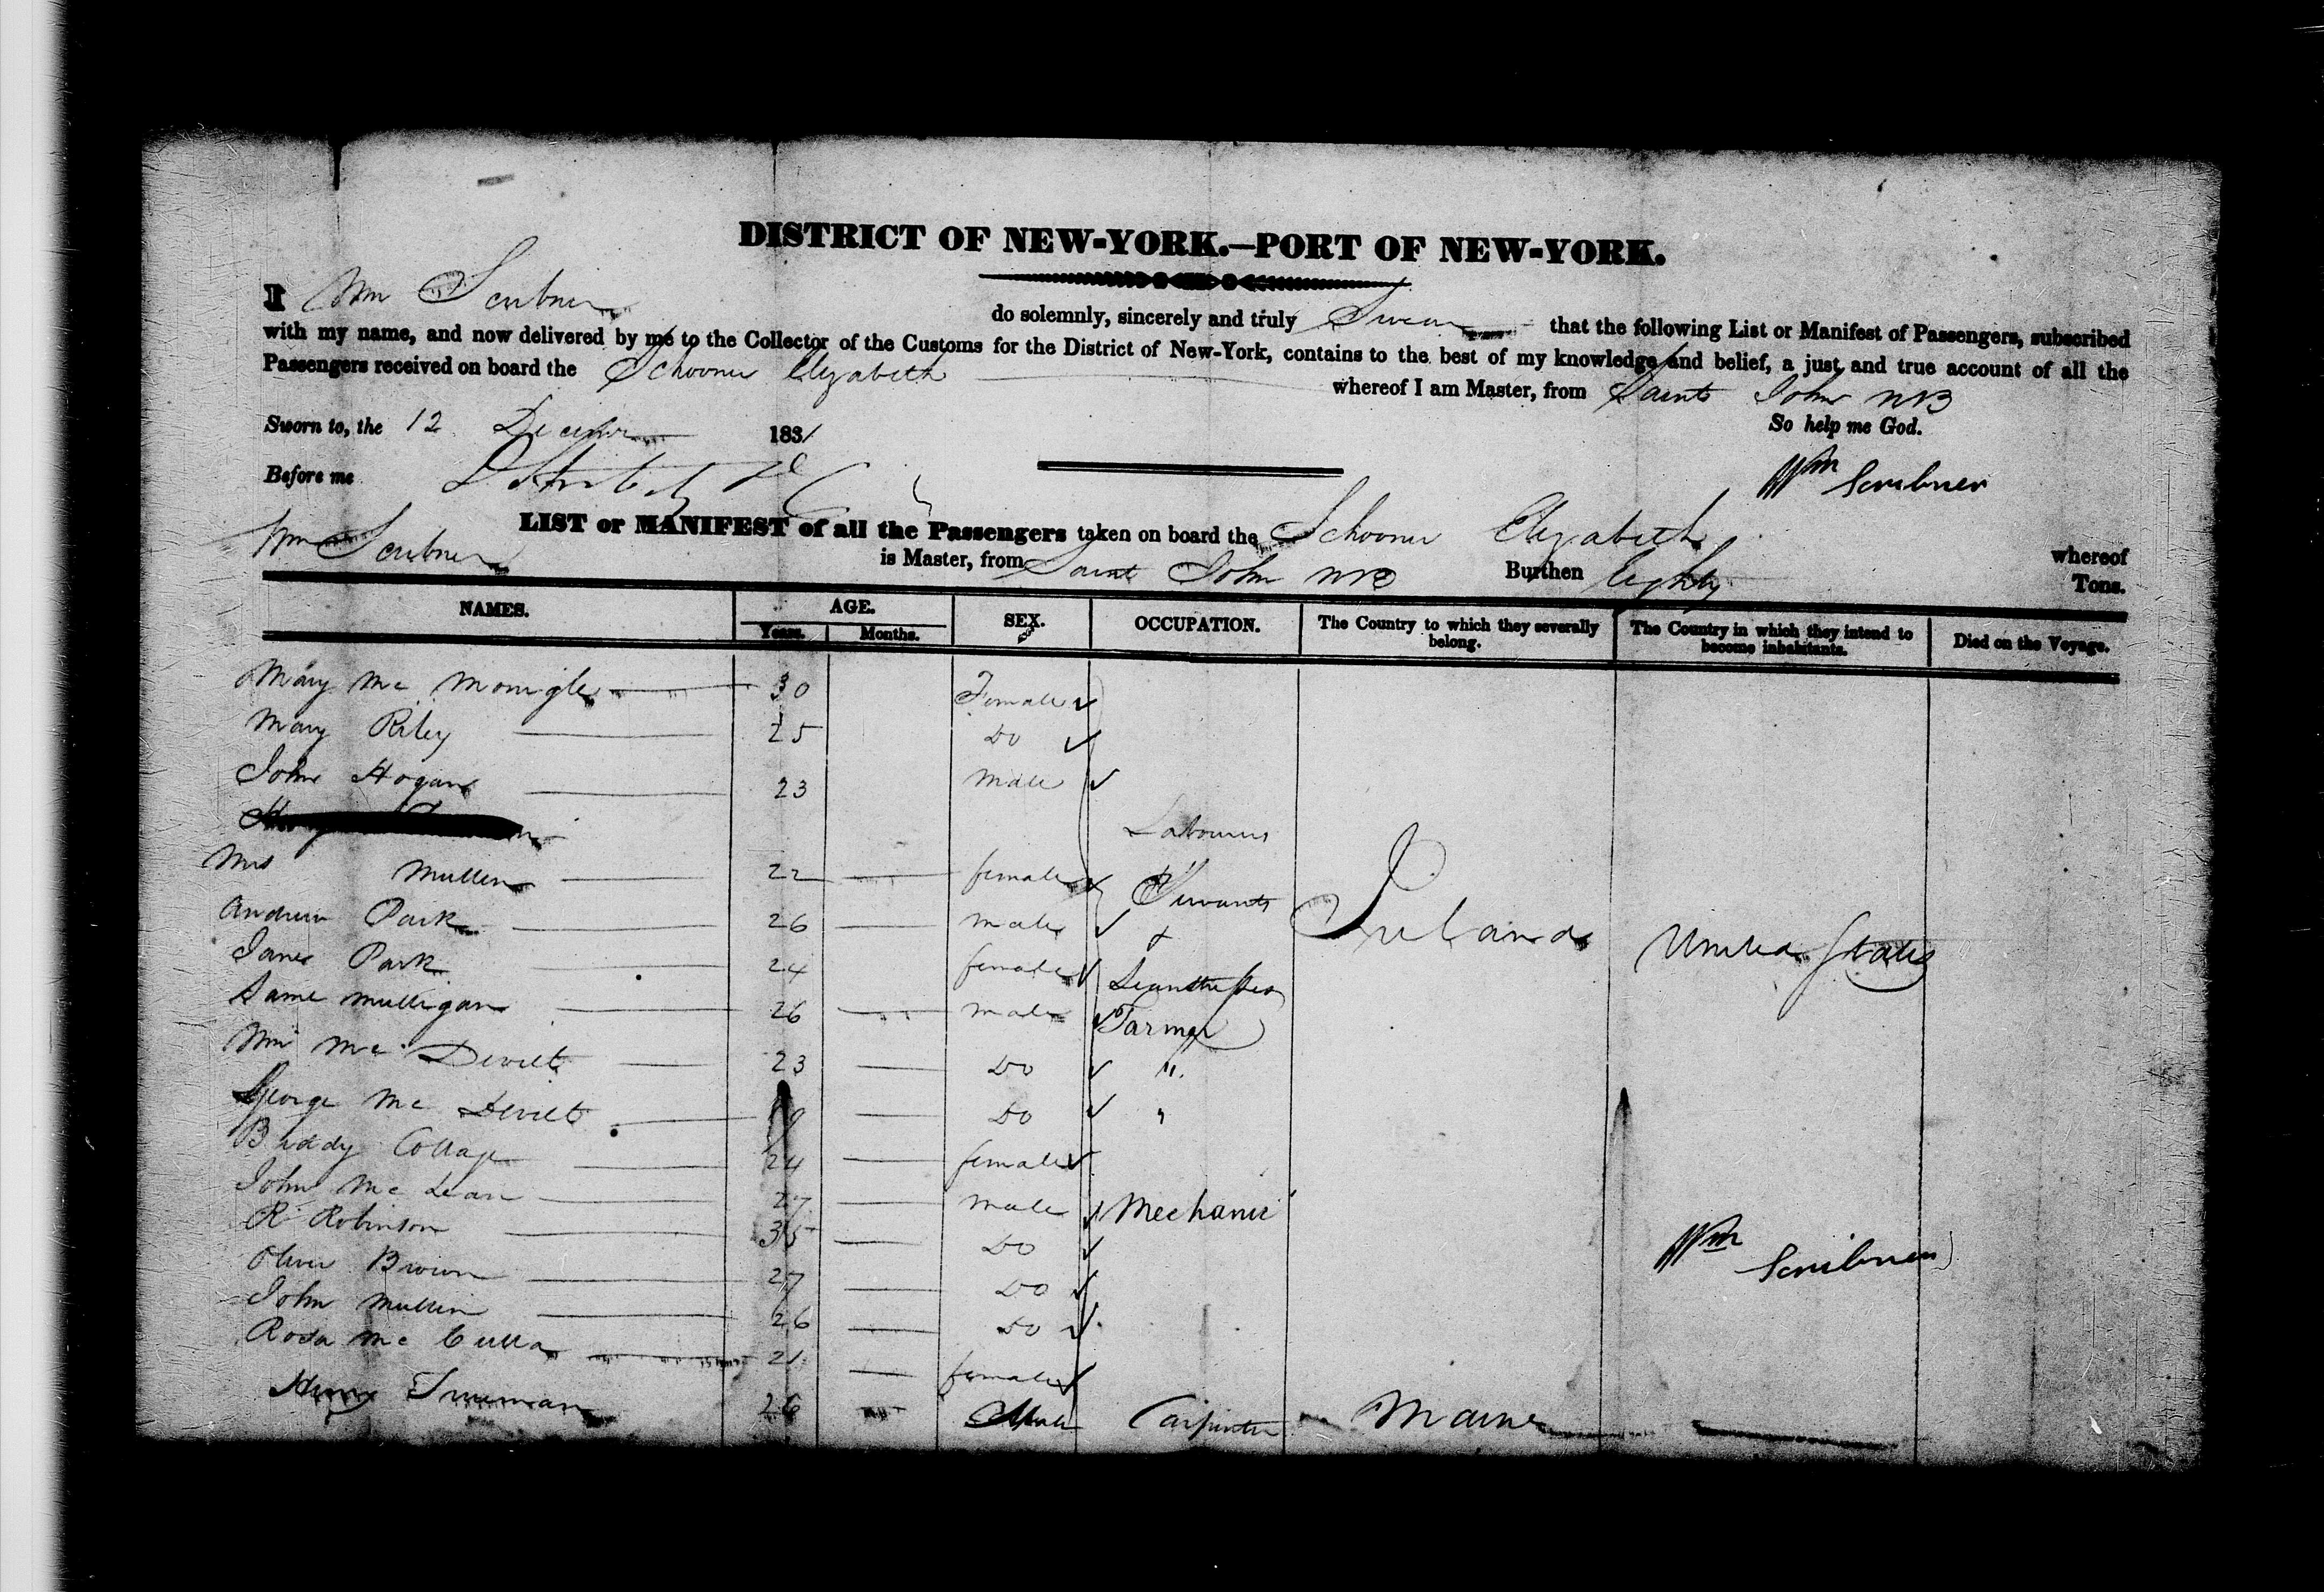 DISTRICT OF NEW-YORK.—PORT OF NEW-YORK.
I Wm Scribner do solemnly, sincerely and truly Swear that the following List or Manifest of Passengers, subscribed
with my name, and now delivered by me to the Collector of the Customs for the District of New-York, contains to the best of my knowledge and belief, a just and true account of all the
Passengers received on board the Schooner Elizabeth whereof I am Master, from Saint John NB
Sworn to, the 12 December 1831 So help me God.
Before me
Wm Scribner
LIST or MANIFEST of all the Passengers taken on board the Schooner Elizabeth whereof
Wm Scribner is Master, from Saint John NB Burthen Eighty Tons.
NAMES. AGE. SEX. OCCUPATION. The Country to which they severally belong. The Country in which they intend to become inhabitants. Died on the Voyage.
Years. Months.
Mary Mc Monigle 30 Female
Mary Riley 25 Do
John Hogan 23 Male
Labourers
Mrs Mullen 22 female Servants
Andrew Park 26 male &
Jane Park 24 female Ireland United States
Mulligan 26 male Farmer
Wm Mc Devitt 23 Do "
George Mc Devitt Do "
Biddy 24 female
John Mc Lean 27 male Mechanic
R Robinson 35 Do
Oliver Brown 27 Do
Wm Scribner
John Mullin 26 Do
Rosa Mc Culla 21 female
Henry Trueman 26 Male Carpenter Maine